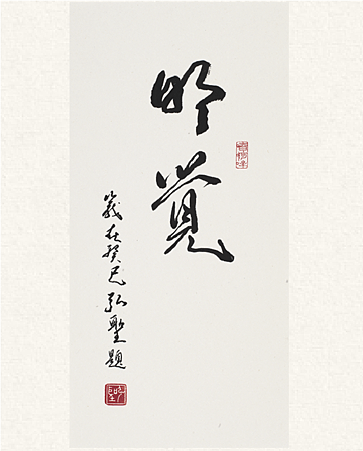 明覺
歲在癸巳弘聖題